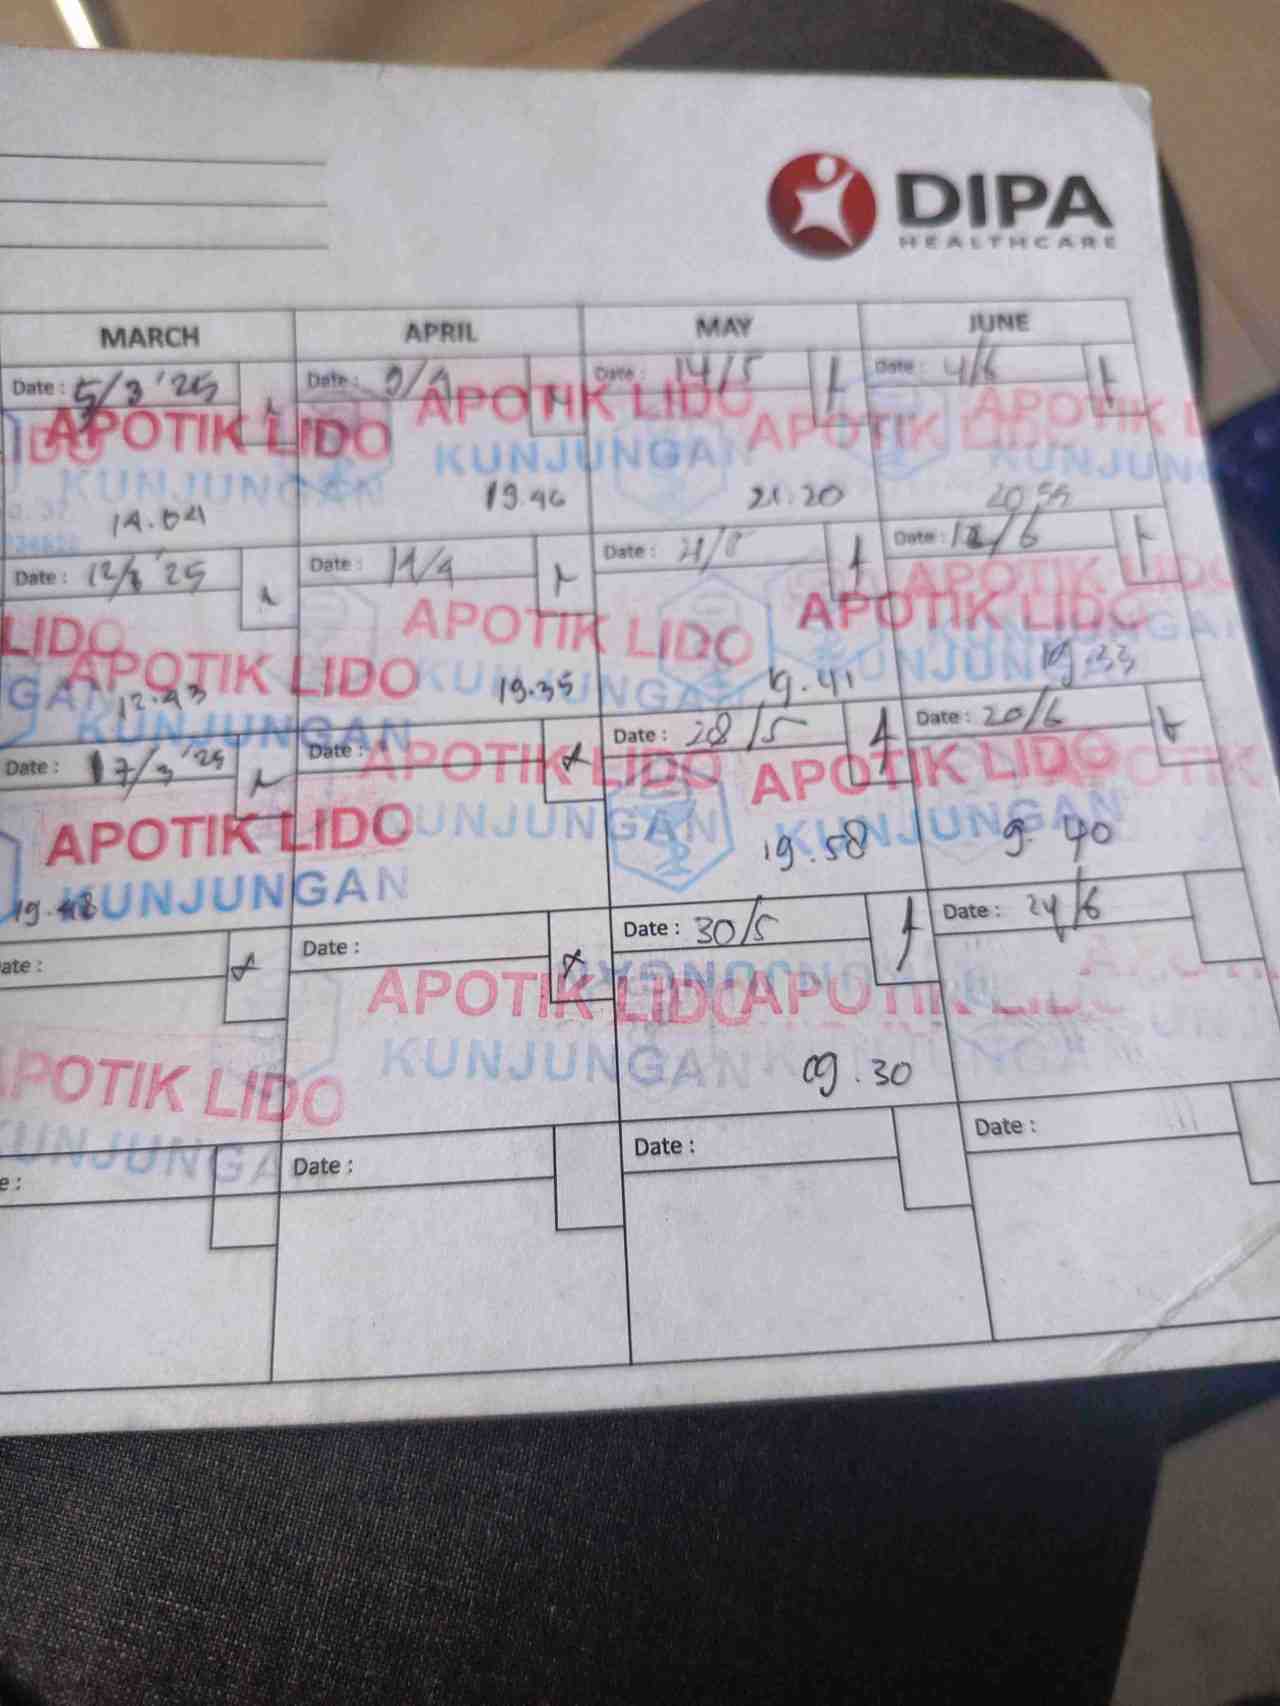 DIPA
HEALTHCARE
MARCH APRIL MAY JUNE
Date : 5/3 '25 Date : 9/4 Date : 14/5 Date : 4/6
APOTIK LIDO APOTIK LIDO APOTIK LIDO APOTIK L
KUNJUNGAN KUNJUNGAN KUNJUNG
14.04 19.46 21.20 20.55
Date : 12/3 '25 Date : 14/4 Date : 21/5 Date : 12/6
LIDO APOTIK LIDO APOTIK LIDO APOTIK LIDO APOTIK LIDO
GAN KUNJUNGAN KUNJUNGAN KUNJUNGAN
12.43 19.35 19.41 19.33
Date : 17/3 '25 Date : Date : 28/5 Date : 20/6
APOTIK LIDO APOTIK LIDO APOTIK LIDO APOTIK
KUNJUNGAN KUNJUNGAN KUNJUNGAN
19.48 19.58 9.40
ate : Date : Date : 30/5 Date : 24/6
APOTIK LIDO APOTIK LIDO APOTIK LIDO
KUNJUNGA KUNJUNGAN
09.30
e : Date : Date : Date :